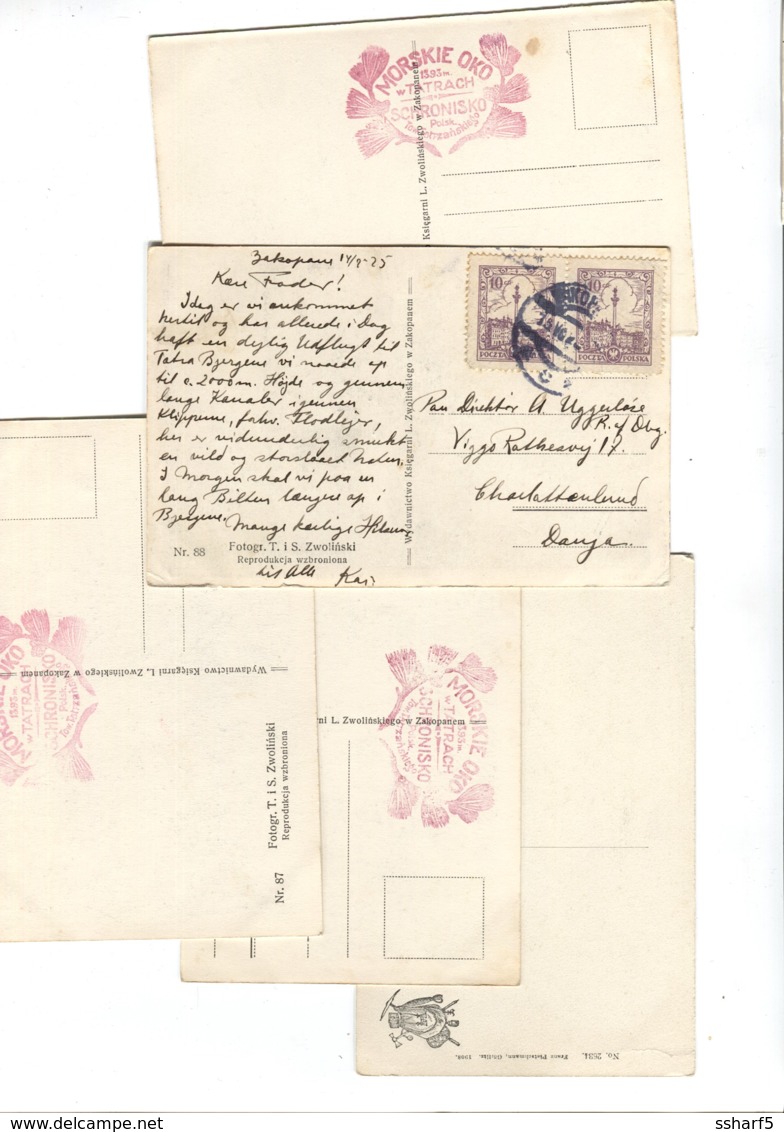 MORSKIE OKO
1393 m.
w TATRACH
SCHRONISKO
Polsk.
Tow. Tatrzańskiego
Księgarni L. Zwolińskiego w Zakopanem
Zakopane 14/8-25
Kære Fader!
Idag er vi ankommet
hertil og har allerede i Dag
haft en dejlig Udflugt til
Tatra Bjergene vi naaede op
til c. 2000 m. Højde og gennem
lange Kanaler igennem
Klipperne,
her er vidunderlig smukt
en vild og storslaaet Natur,
I Morgen skal vi paa en
lang Biltur længere op i
Bjergene. Mange kærlige Hilsner
til Alle Kai
Nr. 88
Fotogr. T. i S. Zwoliński
Reprodukcja wzbroniona
Wydawnictwo Księgarni L. Zwolińskiego w Zakopanem
10 10
POCZTA POLSKA
Pan Direktör A. Uggerløse
R. af Dbg.
Viggo Rothesvej 17.
Charlottenlund
Danja.
MORSKIE OKO
1393 m.
w TATRACH
SCHRONISKO
Polsk.
Tow. Tatrzańskiego
Wydawnictwo Księgarni L. Zwolińskiego w Zakopanem
Fotogr. T. i S. Zwoliński
Reprodukcja wzbroniona
Nr. 87
MORSKIE OKO
1393 m.
w TATRACH
SCHRONISKO
Polsk.
Tow. Tatrzańskiego
rni L. Zwolińskiego w Zakopanem
No. 2634. Franz Pietschmann, Görlitz. 1908.
ssharf5